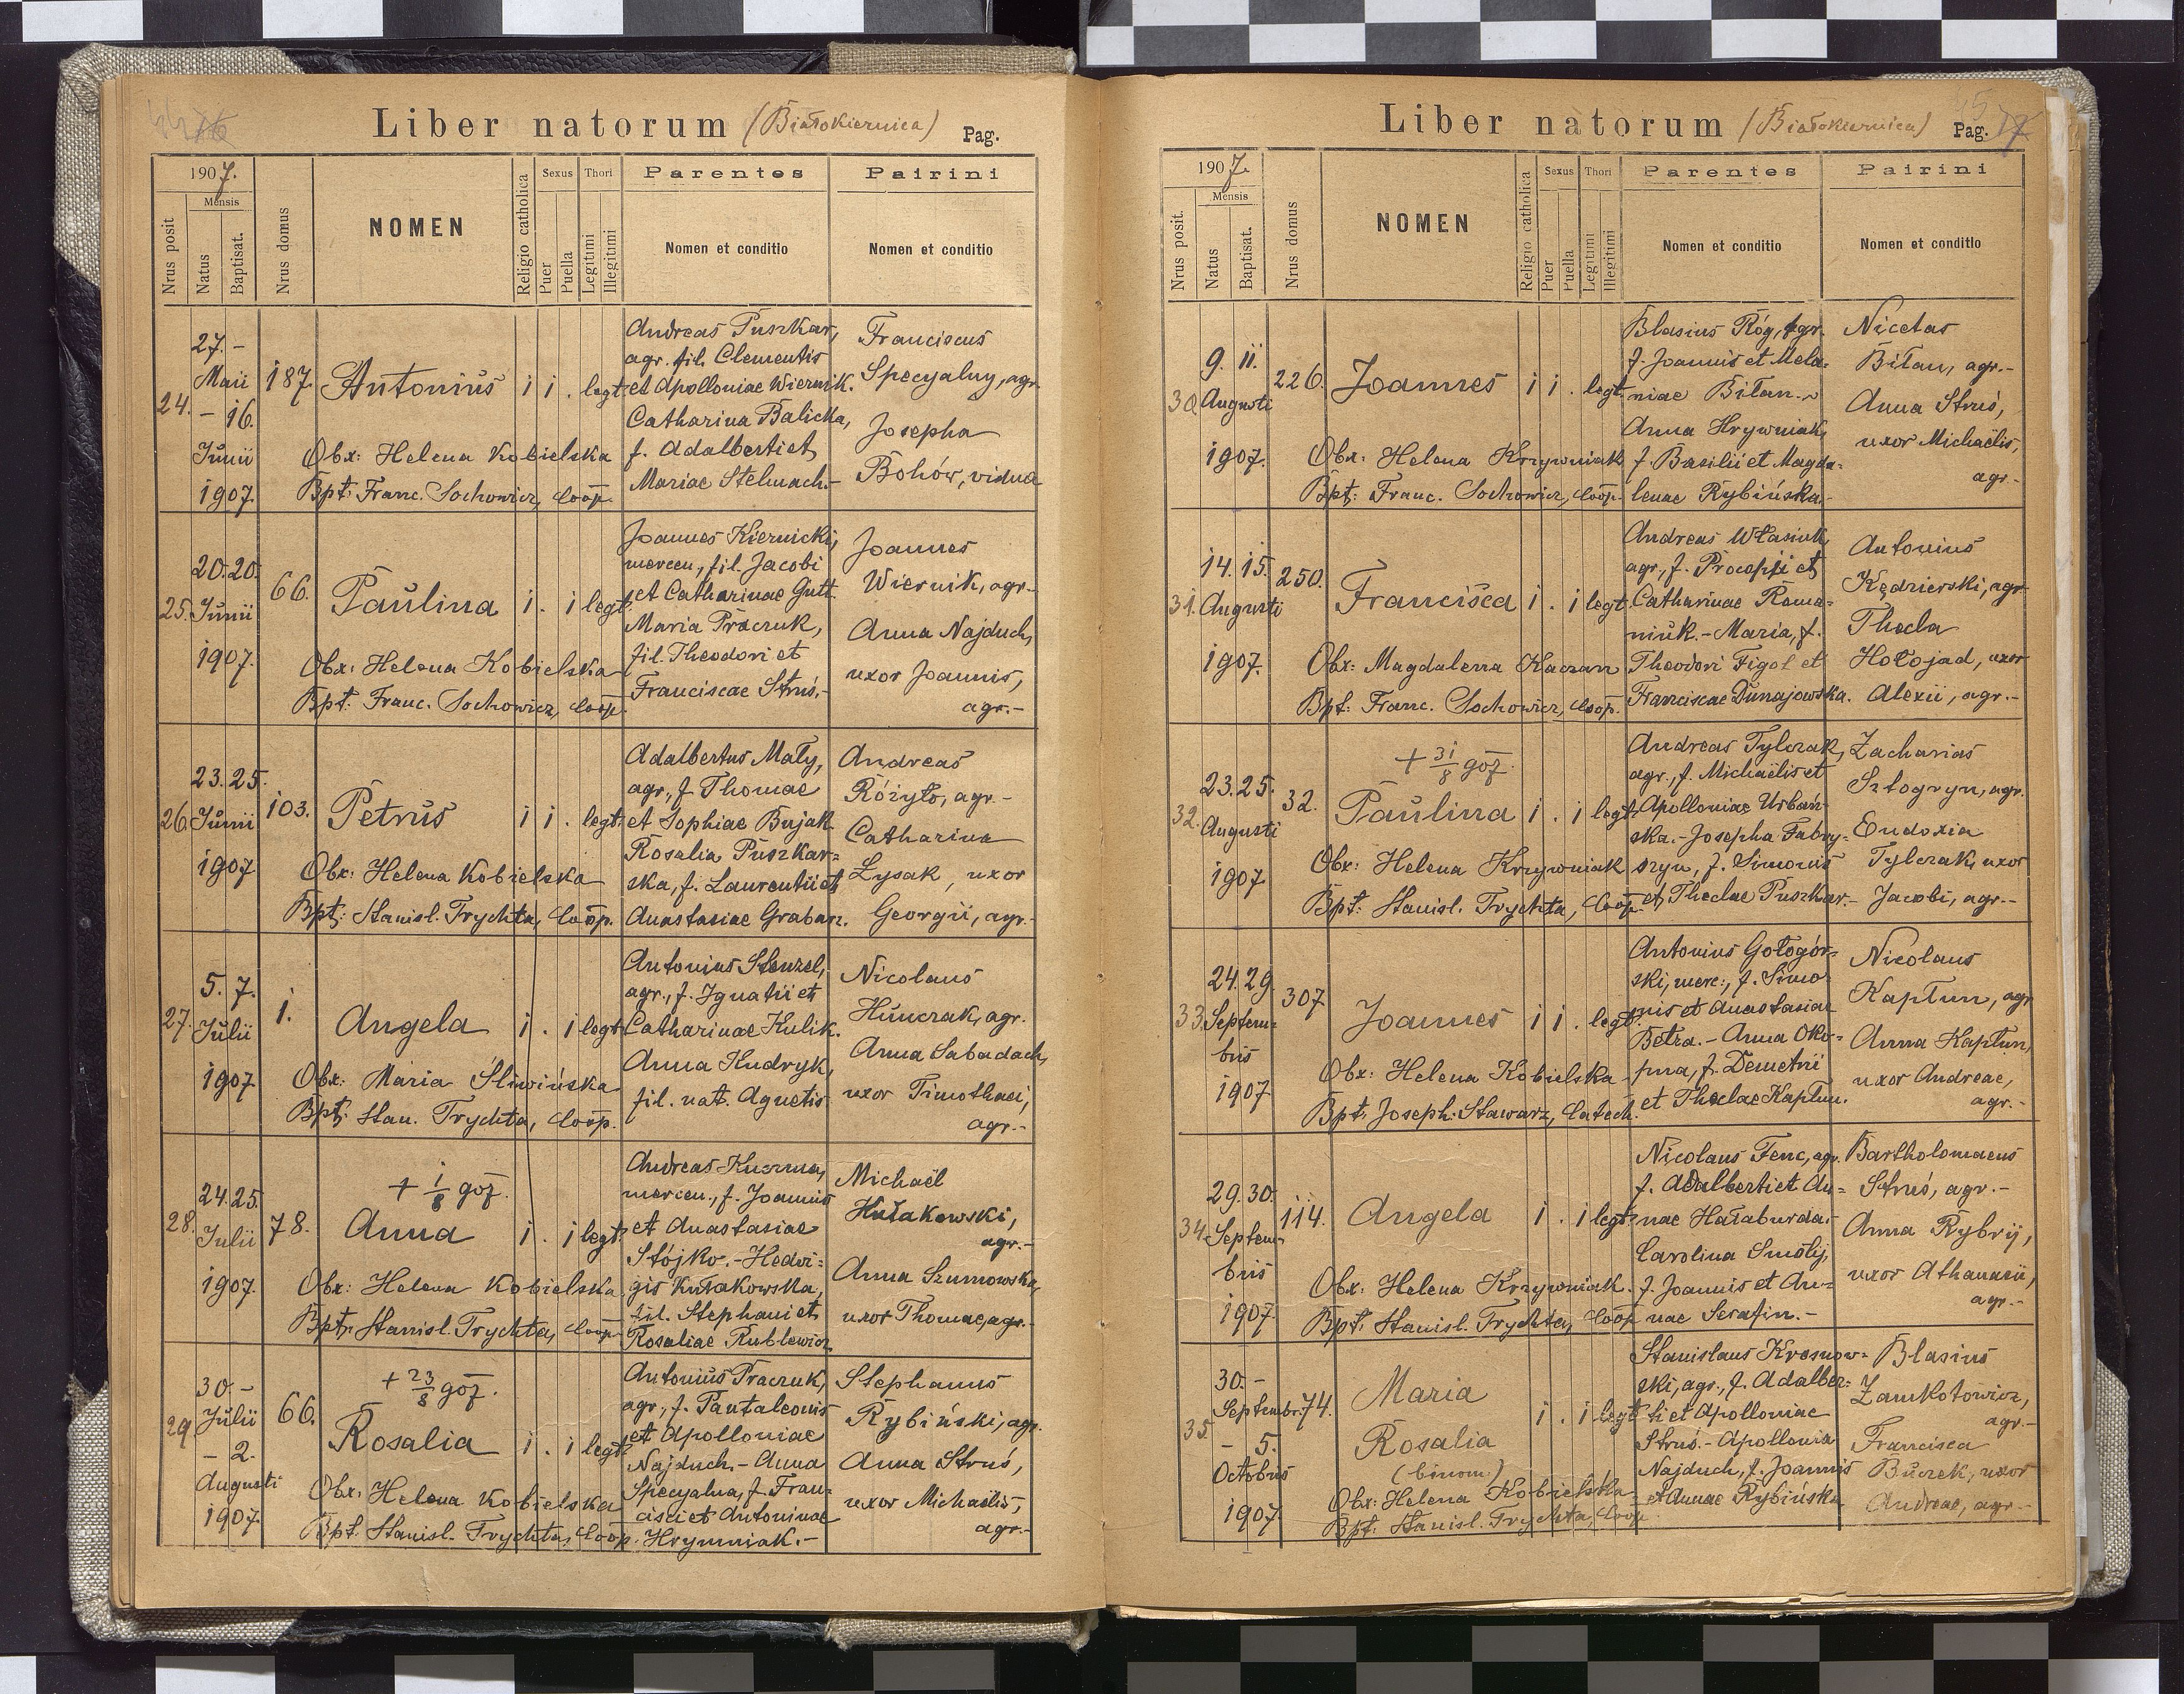 Liber natorum (Białokiernica) Pag.
1907.
Mensis
Nrus posit
Natus
Baptisat.
Nrus domus
NOMEN
Religio catholica
Sexus
Puer
Puella
Thori
Legitimi
Illegitimi
Parentes
Nomen et conditio
Pairini
Nomen et conditio
24.
27. –
Maii
– 16.
Junii
1907.
187.
Antonius
i i . legt.
Obx: Helena Kobielska
Bpt: Franc. Sochowicz, Coop.
Andreas Puszkar,
agr. fil. Clementis
et Apolloniae Wiernik.
Catharina Balicka,
f. Adalberti et
Mariae Stelmach.-
Franciscus
Specyalny, agr.
Josepha
Bohów, vidua
25.
20. 20.
Junii
1907.
66.
Paulina
i . i legt.
Obx: Helena Kobielska
Bpt: Franc. Sochowicz, Coop.
Joannes Kiernicki,
mercen., fil. Jacobi
et Catharinae Gutt.
Maria Praczuk,
fil. Theodori et
Franciscae Struś.-
Joannes
Wiernik, agr.-
Anna Najduch,
uxor Joannis,
agr.-
26.
23. 25.
Junii
1907
103.
Petrus
i i . legt.
Obx: Helena Kobielska
Bpt: Stanisl. Trychta, Coop.
Adalbertus Mały,
agr., f. Thomae
et Sophiae Bujak.
Rosalia Puszkar-
ska, f. Laurentii et
Anastasiae Graban.
Andreas
Różyło, agr.-
Catharina
Łysak, uxor
Georgii, agr.-
27.
5. 7.
Julii
1907
1.
Angela
i . i legt.
Obx: Maria Śliwińska
Bpt: Stan. Trychta, Coop.
Antonius Stenzel,
agr., f. Ignatii et
Catharinae Kulik.
Anna Kudryk,
fil. nat. Agnetis
Nicolaus
Hunczak, agr.
Anna Sabadach,
uxor Timothaei,
agr.-
28.
24. 25.
Julii
1907.
78.
+ 1/8 907.
Anna
i . i legt.
Obx: Helena Kobielska
Bpt: Stanisl. Trychta, Coop.
Andreas Kuzma,
mercen., f. Joannis
et Anastasiae
Stójko.- Hedwi-
gis Kułakowska,
fil. Stephani et
Rosaliae Rublewicz
Michaël
Kułakowski,
agr.-
Anna Szumowska,
uxor Thomae, agr.-
29
30. –
Julii
– 2.
Augusti
1907.
66.
+ 23/8 907.
Rosalia
i . i legt.
Obx: Helena Kobielska
Bpt. Stanisl. Trychta, Coop.
Antonius Praczuk,
agr., f. Pantaleonis
et Apolloniae
Najduch.- Anna
Specyalna, f. Fran-
cisci et Antoninae
Hrymniak.-
Stephanus
Rybiński, agr.
Anna Struś,
uxor Michaëlis,
agr.-
Liber natorum (Białokiernica) Pag. 17
1907.
Mensis
Nrus posit.
Natus
Baptisat.
Nrus domus
NOMEN
Religio catholica
Sexus
Puer
Puella
Thori
Legitimi
Illegitimi
Parentes
Nomen et conditio
Pairini
Nomen et conditio
30.
9. 11.
Augusti
1907.
226.
Joannes
i i . legt.
Obx: Helena Krzywniak
Bpt: Franc. Sochowicz, Coop.
Blasius Róg, agr.
f. Joannis et Mela-
niae Bitan.-
Anna Hrywniak,
f. Basilii et Magda-
lenae Rybińska.-
Nicetas
Bitan, agr.-
Anna Struś,
uxor Michaëlis,
agr.-
31.
14. 15.
Augusti
1907.
250.
Francisca
i . i legt.
Obx: Magdalena Kaczan
Bpt: Franc. Sochowicz, Coop.
Andreas Własiuk,
agr., f. Procopii et
Catharinae Roma-
niuk.- Maria, f.
Theodori Figol et
Franciscae Dunajowska.
Antonius
Kędzierski, agr.
Thecla
Hołojad, uxor
Alexii, agr.-
32.
23. 25.
Augusti
1907
32.
+ 31/8 907.
Paulina
i . i legt.
Obx: Helena Krzywniak
Bpt: Stanisl. Trychta, Coop.
Andreas Tylczak,
agr., f. Michaëlis et
Apolloniae Urbań-
ska.- Josepha Fabry-
szyn, f. Simonis
et Theclae Puszkar.-
Zacharias
Sztogryn, agr.
Eudoxia
Tylczak, uxor
Jacobi, agr.-
33.
24. 29.
Septem-
bris
1907
307
Joannes
i i . legt.
Obx: Helena Kobielska
Bpt: Joseph. Stawarz, Catech.
Antonius Gołogór-
ski, merc., f. Simo-
nis et Anastasiae
Betza.- Anna Oko-
pna, f. Demetrii
et Theclae Kaptun.
Nicolaus
Kaptun, agr.
Anna Kaptun,
uxor Andreae,
agr.-
34.
29. 30.
Septem-
bris
1907.
114.
Angela
i . i legt.
Obx: Helena Krzywniak.
Bpt: Stanisl. Trychta, Coop
Nicolaus Fenc, agr.
f. Adalberti et An-
nae Hałaburda.-
Carolina Smolij,
f. Joannis et An-
nae Serafin.-
Bartholomaeus
Struś, agr.-
Anna Rybrij,
uxor Athanasii,
agr.-
35.
30. –
Septembr.
– 5.
Octobris
1907.
74.
Maria
Rosalia
(binom.)
i . i legt.
Obx: Helena Kobielska
Bpt: Stanisl. Trychta, Coop.
Stanislaus Krasnow-
ski, agr., f. Adalber-
ti et Apolloniae
Struś.- Apollonia
Najduch, f. Joannis
et Annae Rybińska
Blasius
Zamkotowicz,
agr.-
Francisca
Buczek, uxor
Andreae, agr.-